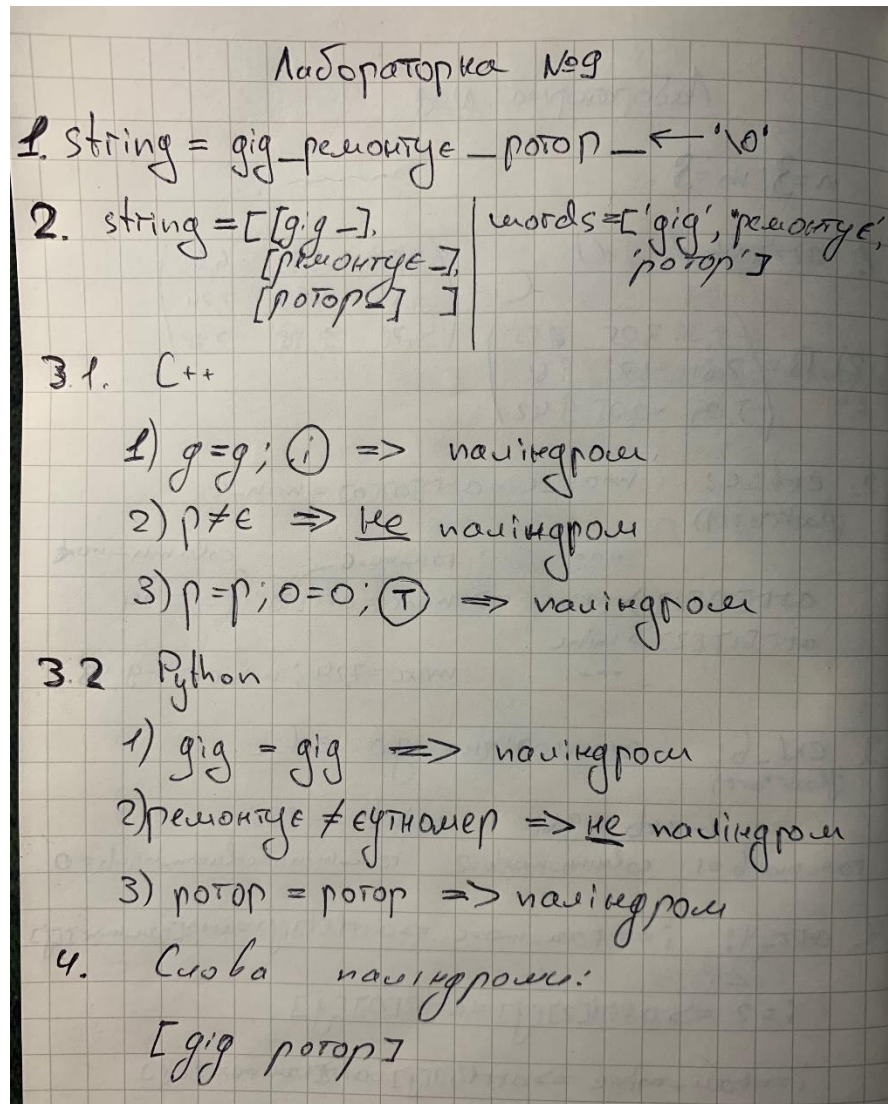 Лабораторка №9
1. string = дід_ремонтує_ротор_ ← '\0'
2. string = [[дід_], | words = ['дід', 'ремонтує',
[ремонтує_], 'ротор']
[ротор_] ]
3.1. C++
1) д=д; і => паліндром
2) р≠є => не паліндром
3) р=р; о=о; т => паліндром
3.2 Python
1) дід = дід => паліндром
2) ремонтує ≠ єутномер => не паліндром
3) ротор = ротор => паліндром
4. Слова паліндроми:
[дід ротор]